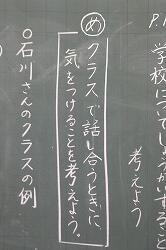 学校にいてしょうがいすること
考えよう
め
クラスで話し合うときに、
気をつけることを考えよう。
○石川さんのクラスの例